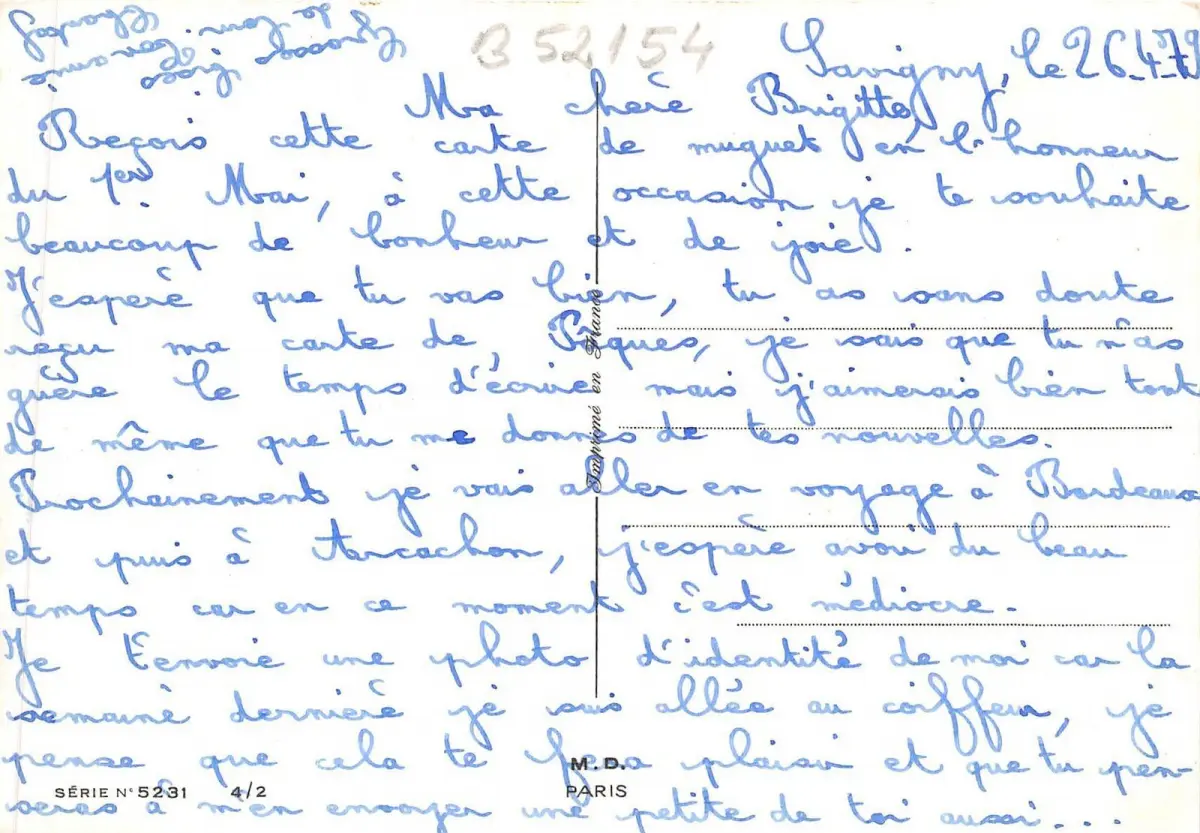 B 52154
Savigny, le 26_4_79
Ma chère Brigitte,
Reçois cette carte de muguet en l'honneur
du 1er Mai, à cette occasion je te souhaite
beaucoup de bonheur et de joie.
J'espère que tu vas bien, tu as sans doute
reçu ma carte de Pâques, je sais que tu n'as
guère le temps d'écrire mais j'aimerais bien tout
de même que tu me donnes de tes nouvelles.
Prochainement je vais aller en voyage à Bordeaux
et puis à Arcachon, j'espère avoir du beau
temps car en ce moment c'est médiocre.
Je t'envoie une photo d'identité de moi car la
semaine dernière je suis allée au coiffeur, je
pense que cela te fera plaisir et que tu pen-
seras à m'en envoyer une petite de toi aussi...
Grosses bises
Imprimé en France
M.D.
PARIS
SÉRIE N° 5231 4/2